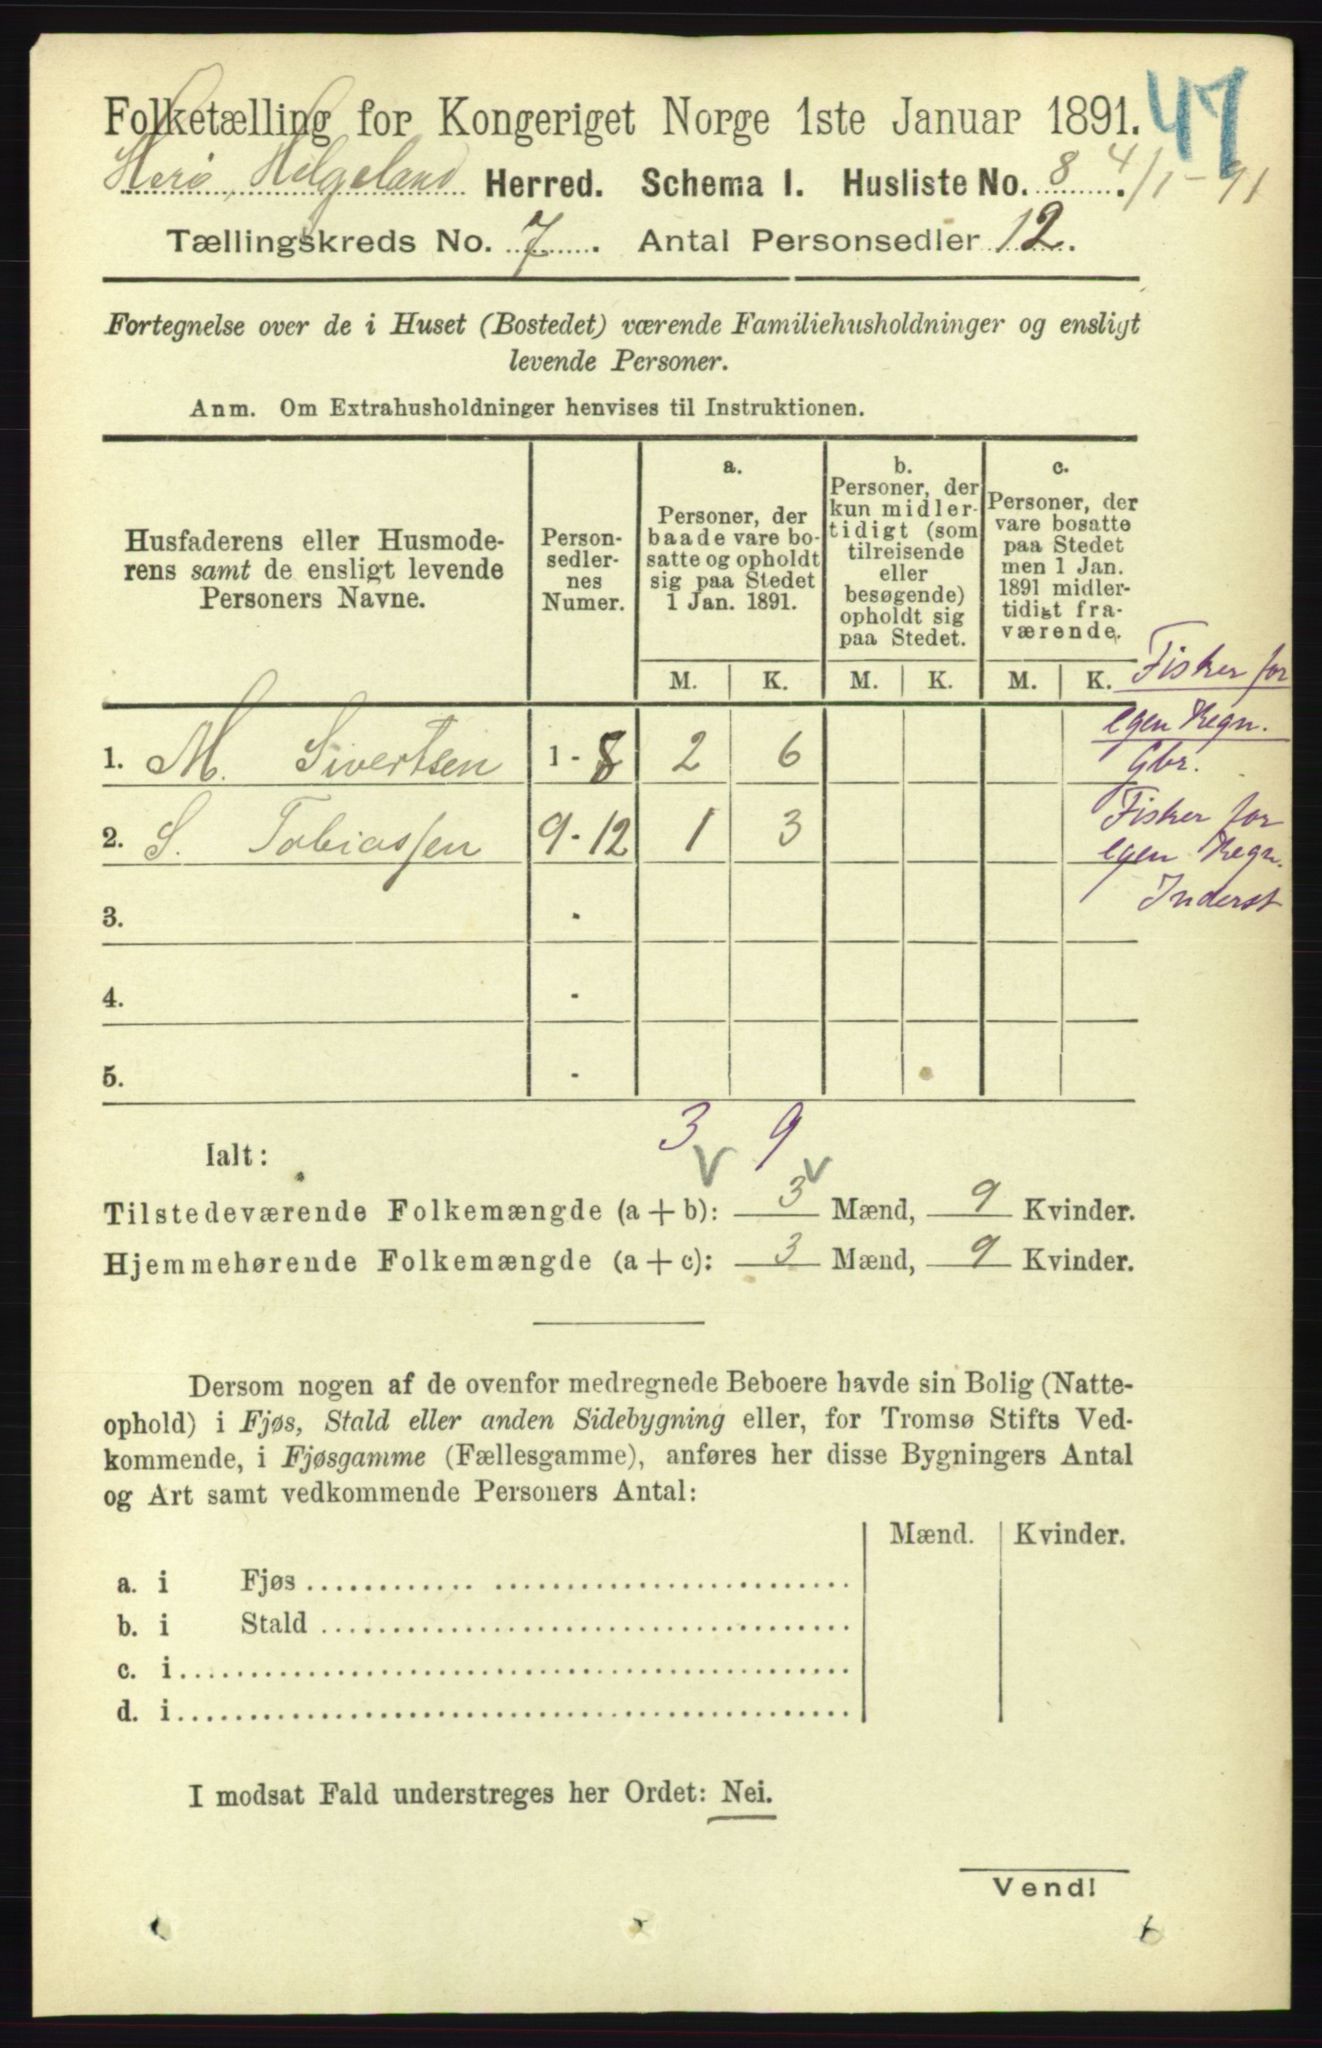 Folketælling for Kongeriget Norge 1ste Januar 1891. 47
Herø, Helgeland Herred. Schema I. Husliste No. 8. 4/1-91
Tællingskreds No. 7. Antal Personsedler 12.
Fortegnelse over de i Huset (Bostedet) værende Familiehusholdninger og ensligt
levende Personer.
Anm. Om Extrahusholdninger henvises til Instruktionen.
Husfaderens eller Husmode-
rens samt de ensligt levende
Personers Navne.
Person-
sedler-
nes
Numer.
a.
Personer, der
baade vare bo-
satte og opholdt
sig paa Stedet
1 Jan. 1891.
b.
Personer, der
kun midler-
tidigt (som
tilreisende
eller
besøgende)
opholdt sig
paa Stedet.
c.
Personer, der
vare bosatte
paa Stedet
men 1 Jan.
1891 midler-
tidigt fra-
værende.
M. K. M. K. M. K.
Fisker for
egen Regn.
Gbr.
1. M. Sivertsen 1-8 2 6
2. S. Tobiassen 9-12 1 3
Fisker for
egen Regn.
Inderst
3. -
4. -
5. -
3 9
Ialt:
Tilstedeværende Folkemængde (a + b): 3 Mænd, 9 Kvinder.
Hjemmehørende Folkemængde (a + c): 3 Mænd, 9 Kvinder.
Dersom nogen af de ovenfor medregnede Beboere havde sin Bolig (Natte-
ophold) i Fjøs, Stald eller anden Sidebygning eller, for Tromsø Stifts Ved-
kommende, i Fjøsgamme (Fællesgamme), anføres her disse Bygningers Antal
og Art samt vedkommende Personers Antal:
Mænd. Kvinder.
a. i Fjøs
b. i Stald
c. i
d. i
I modsat Fald understreges her Ordet: Nei.
Vend!